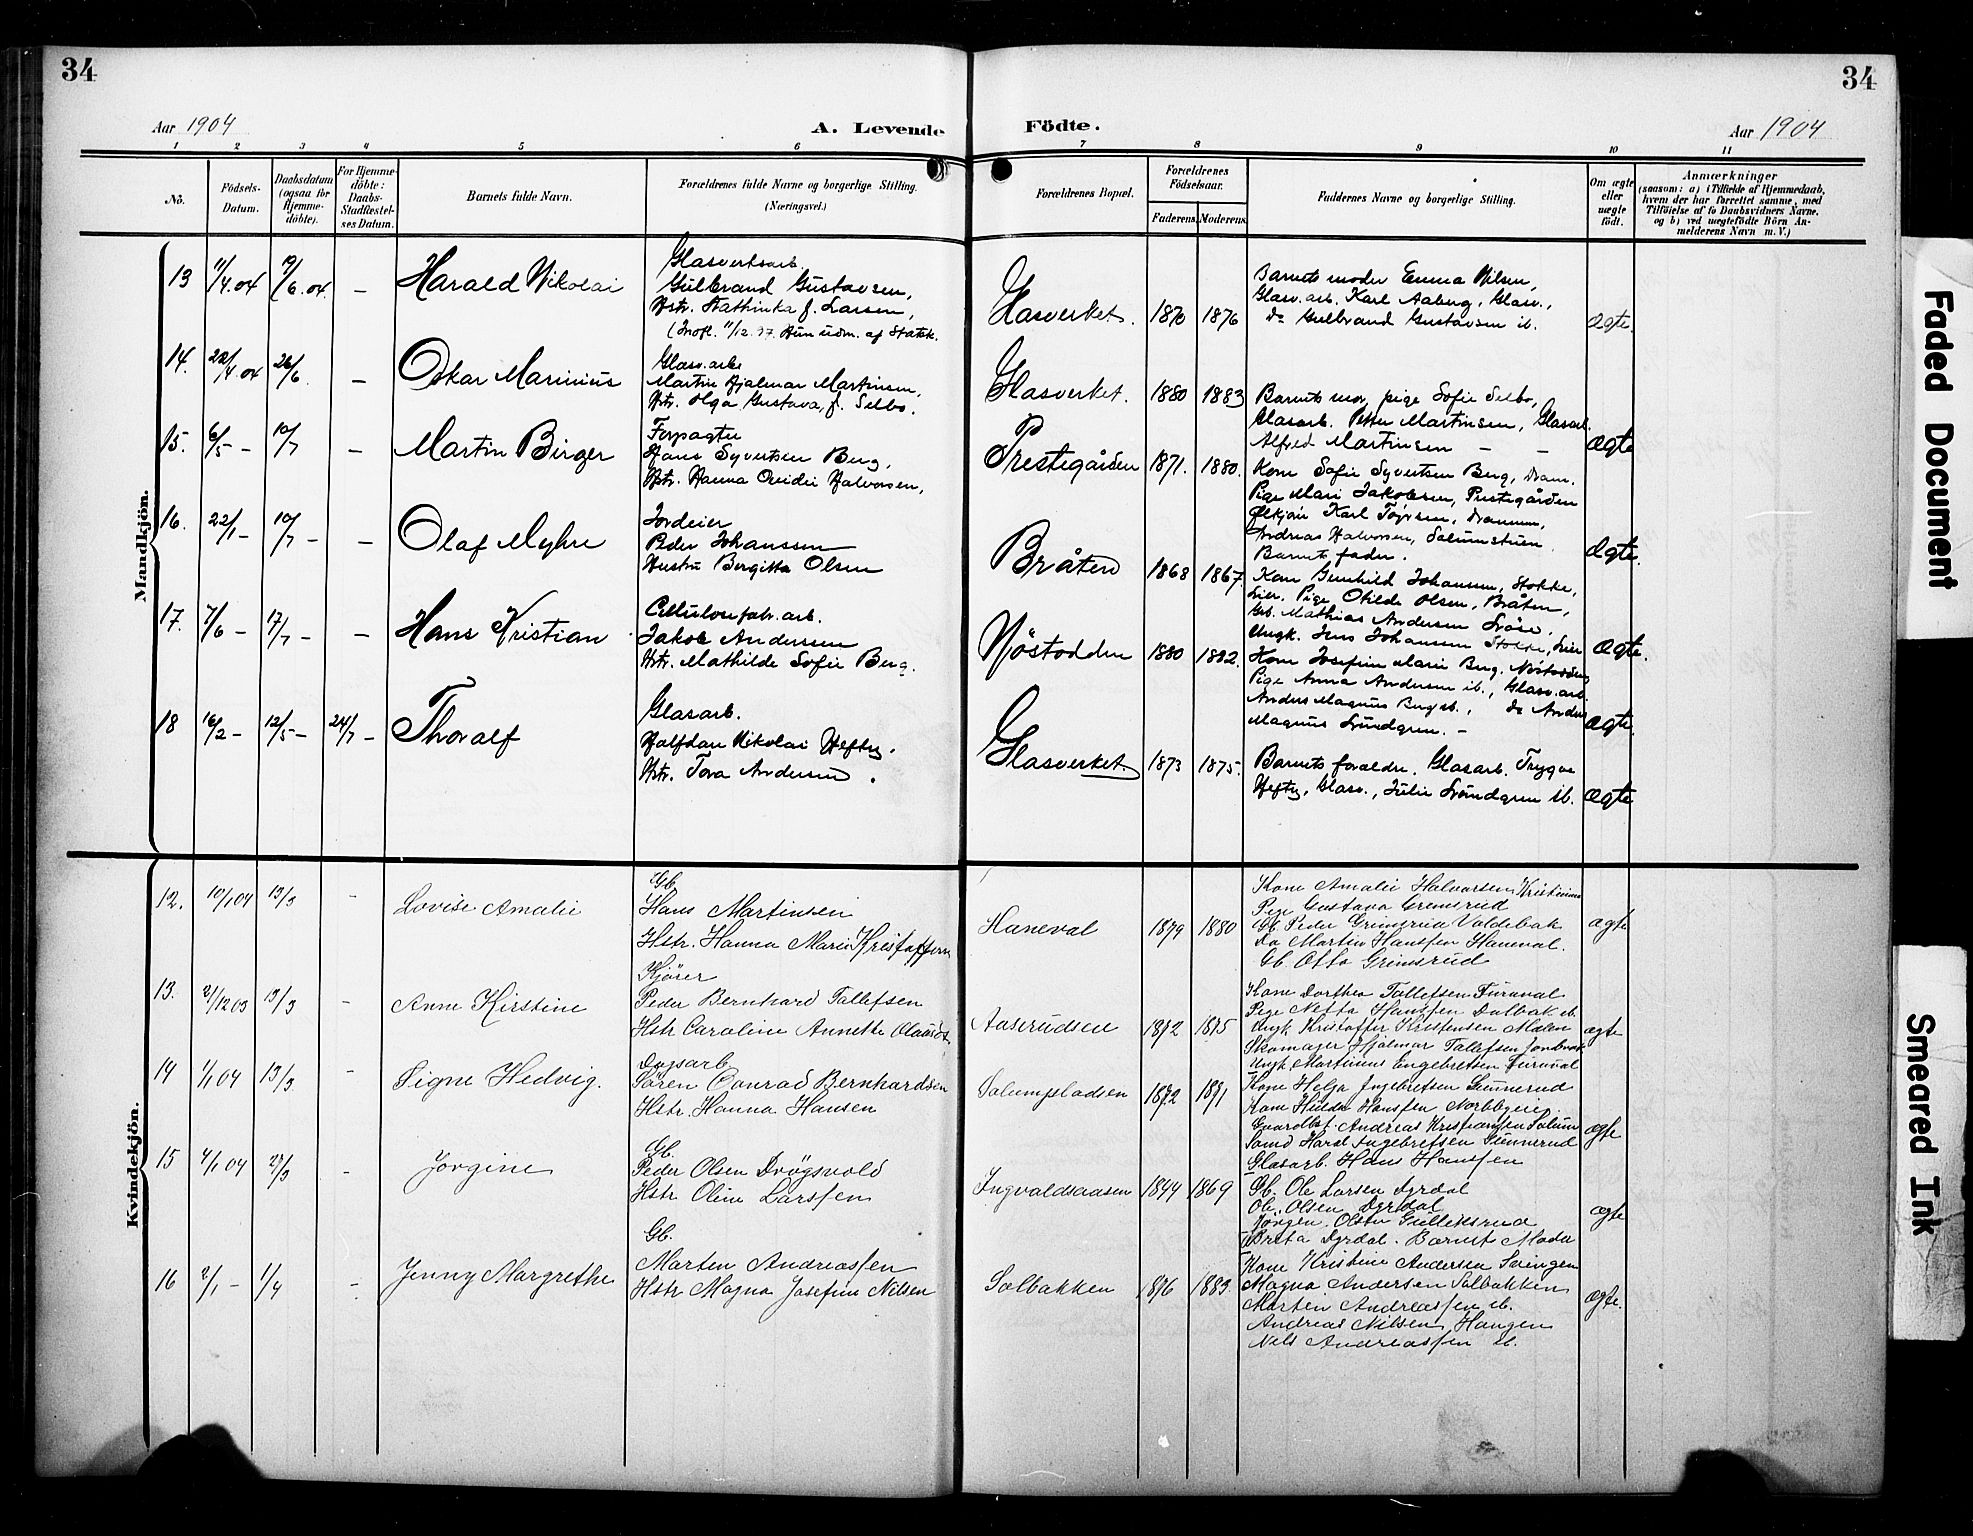 34
34
Aar 1904
A. Levende
Födte.
Aar 1904
1 2 3 4 5 6 7 8 9 10 11
No.
Födsels-Datum.
Daabsdatum (ogsaa for Hjemme-döbte).
For Hjemme-döbte: Daabs-Stadfæstel-ses Datum.
Barnets fulde Navn.
Forældrenes fulde Navne og borgerlige Stilling.
(Næringsvei.)
Forældrenes Bopæl.
Forældrenes Födselsaar.
Faderens. Moderens.
Faddernes Navne og borgerlige Stilling.
Om ægte eller uægte födt.
Anmærkninger
(saasom: a) i Tilfælde af Hjemmedaab,
hvem der har forrettet samme, med
Tilföielse af to Daabsvidners Navne,
og b) ved uægtefödte Börn An-
melderens Navn m. V.)
Mandkjön.
13 11/4.04 19/6.04 – Harald Nikolai
Glasverksarb.
Gulbrand Gustavsen,
Hstr. Kathinka f. Larsen,
Glasverket. 1870 1876
Barnets moder Emma Nilsen,
Glasv.arb. Karl Aaberg, Glasv.,
do Gulbrand Gustavsen ib.
ægte.
14. 22/4.04 26/6. – Oskar Marinius
Glasv.arb.
Martin Hjalmar Martinsen,
Hstr. Olga Gustava, f. Selbo.
Glasverket. 1880 1883
Barnets mor, pige Sofie Selbo,
Glasarb. Petter Martinsen, Glasarb.
Alfred Martinsen – –
ægte
15. 6/5 – 10/7 – Martin Birger
Forpagter
Hans Syvertsen Berg,
Hstr. Hanna Ovidie Halvorsen,
Prestegården 1871. 1880.
Kone Sofie Syvertsen Berg, Dram.
Pige Mari Jakobsen, Prestegården
Karl Tøyrsen, Drammen,
Andreas Halvorsen, Solumstuen
Barnets fader.
ægte.
16. 22/1 – 10/7 – – Olaf Myhre
Jordeier
Peder Johanssen
Hustru Bergitta Olsen
Bråten 1868 1867.
Kone Gunhild Johansen, Stokke,
Lier. Pige Otilde Olsen, Bråten,
Gb. Mathias Andersen
Ungk. Jens Johansen Stokke, Lier
ægte.
17. 7/6 – 17/7 – – Hans Kristian
Cellulosefabr.arb.
Jakob Andersen
Hstr. Mathilde Sofie Berg.
Nøstodden 1880 1882.
Kone Josefine Marie Berg, Nøstodden
Pige Anna Andersen ib., Glasv.arb.
Anders Magnus Berg ib., do Anders
Magnus Lundgren. –
ægte.
18 16/2 – 12/5 – 24/7 – Thoralf
Glasarb.
Halfdan Nikolai Hefty.
Hstr. Tora Andersen.
Glasverket. 1873 1875.
Barnets foreldre. Glasarb. Trygve
Hefty, Glasv., Julie Lundgren ib.
ægte
Kvindekjön.
12. 10/1 04 13/3 – Lovise Amalie
Gb.
Hans Martinsen
Hstr. Hanna Marie Kristoffersen
Haneval 1879 1880
Kone Amalie Halvorsen Kristiania
Pige Gustava Grimsrud
Gb. Peder Grimsrud Valdebak
Do Martin Hanssen Haneval.
Gb. Otto Grimsrud
ægte
13. 21/12 03 13/3 – Anne Kirstine
Kjører
Peder Bernhard Tollefsen
Hstr Caroline Annette Olausdt
Aaserudsen 1872 1875
Kone Dorthea Tollefsen Furuval
Pige Netta Hanssen Dalbak ib.
Ungk. Kristoffer Kristensen Moten
Skomager Hjalmar Tollefsen
Ungk Martinius Engebretsen Furuval
ægte
14 1/1 04 13/3 – Signe Hedvig.
Dagsarb
Søren Conrad Bernhardsen
Hstr. Hanna Hansen
Solumpladsen 1872 1871
Kone Helga Ingebretsen Gunnerud
Kone Hulda Hanssen Nordbyeie
Gaardbst. Andreas Kristiansen Solum
Haral Ingebretsen Gunnerud
Glasarb. Hans Hanssen
ægte
15 4/1 04 27/3 – Jørgine
Gb.
Peder Olsen Drøgsvold
Hstr Oline Larssen
Ingvaldsaasen 1844 1869
Gb. Ole Larsen Dyrdal
Ole Olsen Dyrdal
Jørgen Olsen Gulliksrud
Berta Dyrdal. Barnets Moder
ægte
16 2/1 – 1/4 – Jenny Margrethe
Gb.
Morten Andreassen
Hstr Magna Josefine Nilsen
Solbakken 1876 1883.
Kone Kristine Andersen Svingen
Magna Andersen Solbakken
Morten Andreassen ib.
Andreas Nilsen Haugen
Nils Andreassen ib.
ægte.
Faded Document
Smeared Ink